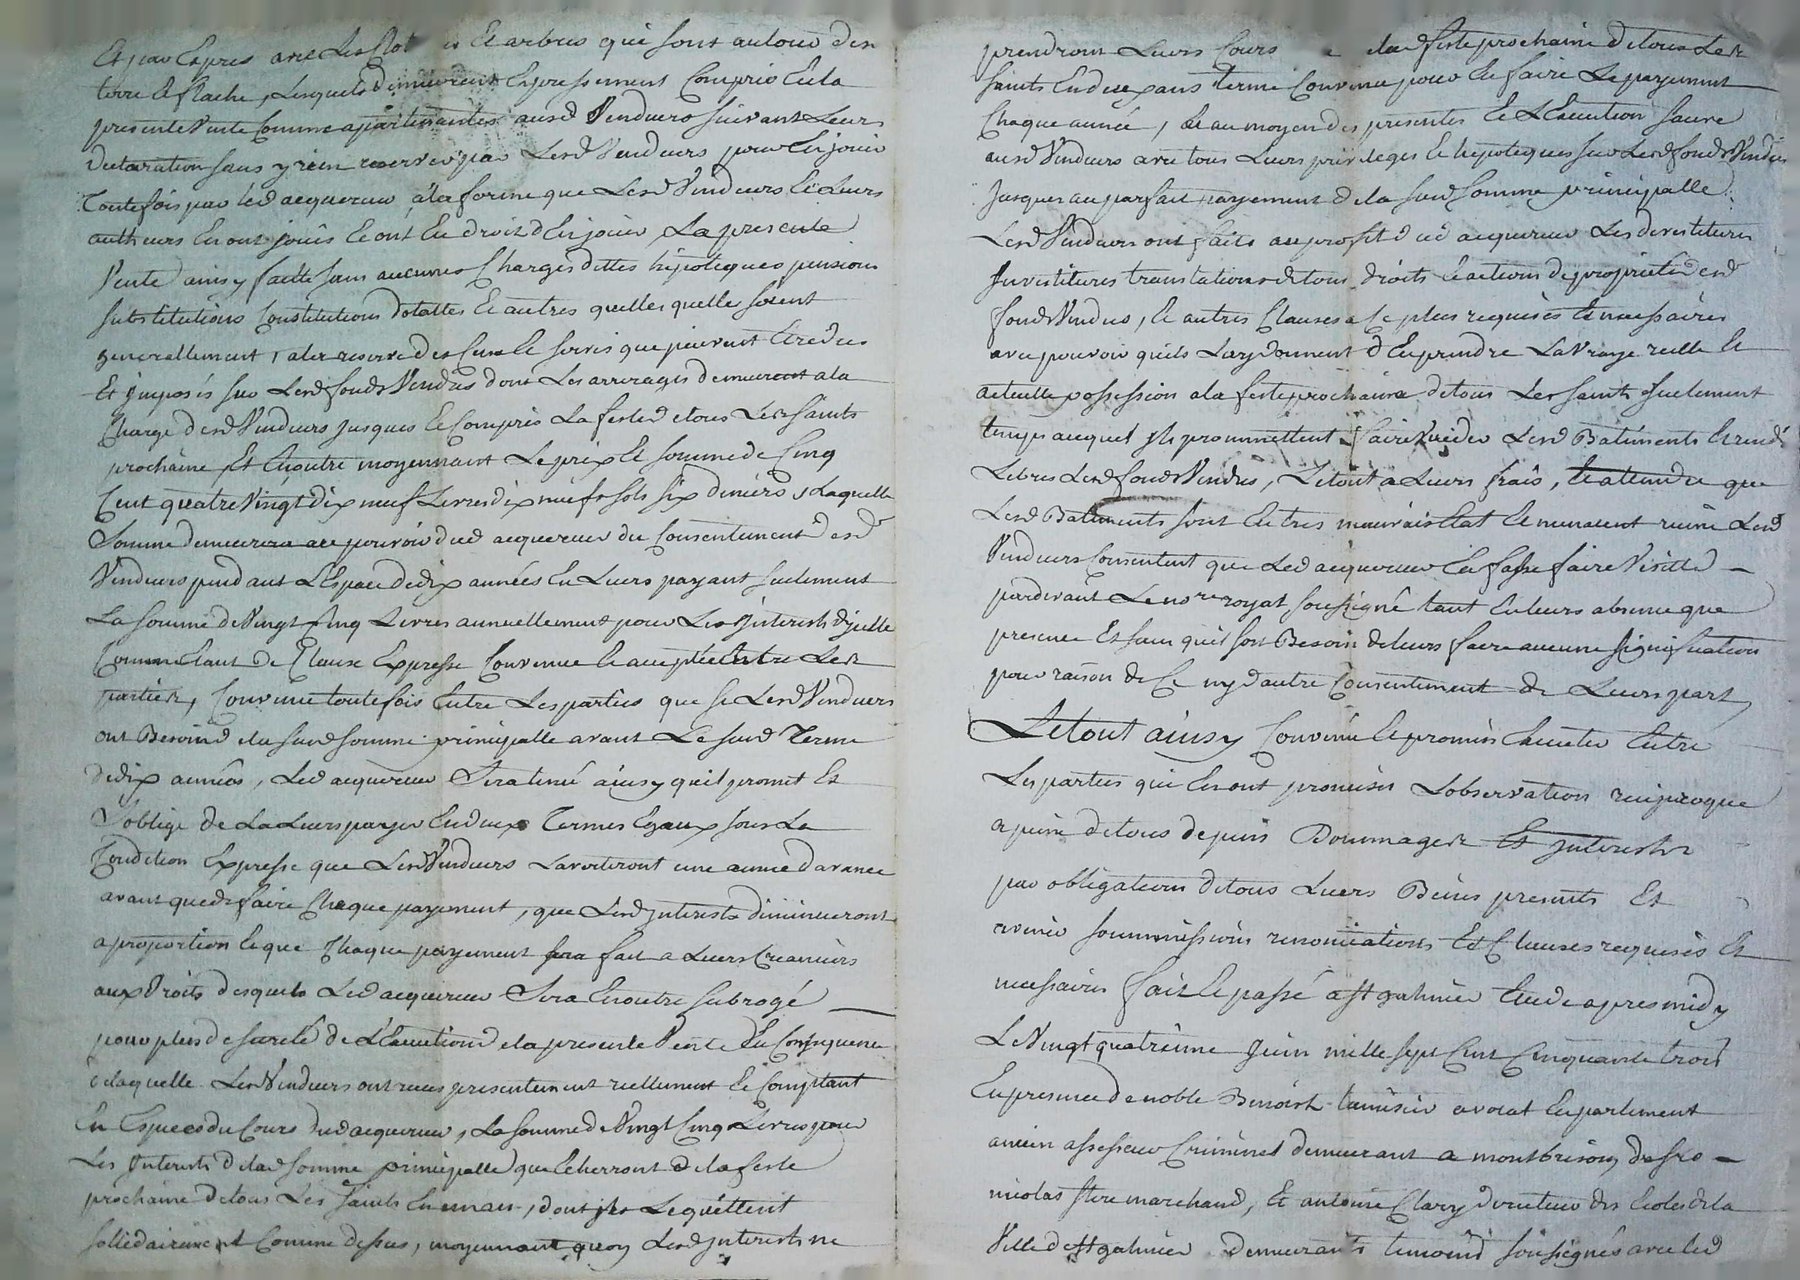 Et par Expres avec Les Clot Et arbres qui sont autour des
terre Et flache, Lesquels demeurent Expressement Compris En la
presente Vente Comme apartenantes ausd Vendeurs suivant Leurs
declaration sans y rien reserver par Lesd Vendeurs pour En jouir
Toutefois par led acquereur a la forme que Lesd Vendeurs Et Leurs
autheurs En ont jouis Et ont Eu droit d'En jouir, La presente
Vente ainsy faitte sans aucunes Charges dettes hipoteques pensions
substitutions Constitutions dotalles Et autres quelles quelles soient
generallement, a la reserve des Cens Et servis que peuvent Etre dus
Et imposés sur Lesd fonds Vendus dont Les arrerages demeurent a la
Charge desd Vendeurs jusques Et Compris La feste de tous Les saints
prochaine, Et En outre moyennant Le prix Et somme de Cinq
Cent quatre Vingt dix neuf Livres dix neuf sols six deniers, Laquelle
Somme demeurera au pouvoir dud acquereur du Consentement desd
Vendeurs pendant L'Espace de dix années En Leurs payant seulement
La somme de Vingt Cinq Livres annuellement pour Les Interests d'jcelle
Comme Etant de Clause Expresse Convenue Et acceptée Entre Les
parties, Convenu toutefois Entre Les parties que si Lesd Vendeurs
ont Besoin de la susd somme principalle avant Le susd Terme
de dix années, Led acquereur Sera tenu ainsy qu'il promet Et
S'oblige de La Leurs payer En deux Termes Egaux sous La
Condition Expresse que Lesd Vendeurs L'avertiront une année d'avance
avant que de faire Chaque payement, que Lesd Interests diminueront
a proportion Et que Chaque payement sera fait a Leurs Creanciers
aux Droits desquels Led acquereur Sera En outre subrogé
pour plus de sureté de L'Execution de la presente Vente En Consequence
de laquelle Lesd Vendeurs ont reçus presentement reellement Et Comptant
En Especes du Cours dud acquereur, La somme de Vingt Cinq Livres pour
Les Interests de lad somme principalle qui Echerront de la feste
prochaine de tous Les Saints En un an, dont ils Le quittent
sollidairement Comme dessus, moyennant quoy Lesd Interests ne
prendront Leurs Cours de lad feste prochaine de tous Les
saints En deux ans terme Convenu pour En faire Le payement
Chaque année, Et au moyen des presentes Et L'Execution sauve
ausd Vendeurs avec tous Leurs privileges Et hipoteques sur Lesd fonds Vendus
jusques au parfait payement de la susd somme principalle
Lesd Vendeurs ont faits au profit dud acquereur Les devestitures
Investitures translations de tous droits Et actions de proprieté desd
fonds Vendus, Et autres Clauses a Ce plus requises Et necessaires
avec pouvoir qu'ils Luy donnent d'En prendre La Vraye reelle Et
actuelle possession a la feste prochaine de tous Les saints seulement
temps auquel ils prommettent faire Vuider Lesd Batiments Et rendre
Libres Lesd fonds Vendus, Le tout a Leurs frais, Et attendu que
Lesd Batiments sont En tres mauvais Etat Et menacent ruine Lesd
Vendeurs Consentent que Led acquereur En fasse faire Visitte
pardevant Le nore royal soussigné tant En leurs absence que
presence Et sans qu'il soit Besoin de leurs faire aucune signification
pour raison de Ce ny d'autre Consentement de Leurs part
Le tout ainsy Convenu Et promis Executer Entre
Les parties qui En ont promises L'observation reciproque
a peine de tous depuis Dommages Et Interests
par obligations de tous Leurs Biens presents Et
avenir soummissions renonciations Et Clauses requises Et
necessaires fait Et passé a St galmier Etude apres midy
Le Vingt quatrieme Juin mille sept Cent Cinquante trois
En presence de noble Benoist tamisier avocat En parlement
ancien assesseur Criminel demeurant a montbrison, de sr
nicolas marchand, Et antoine Clavy directeur des Ecoles de la
Ville de St galmier Demeurants temoins soussignés avec led